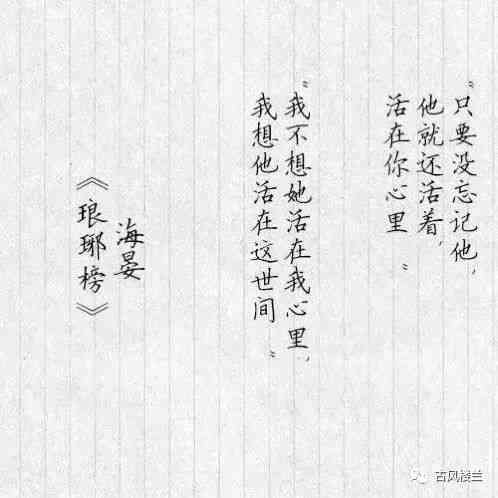 “只要没忘记他，
他就还活着，
活在你心里”
“我不想她活在我心里，
我想他活在这世间”
海晏
《琅琊榜》
古风楼兰